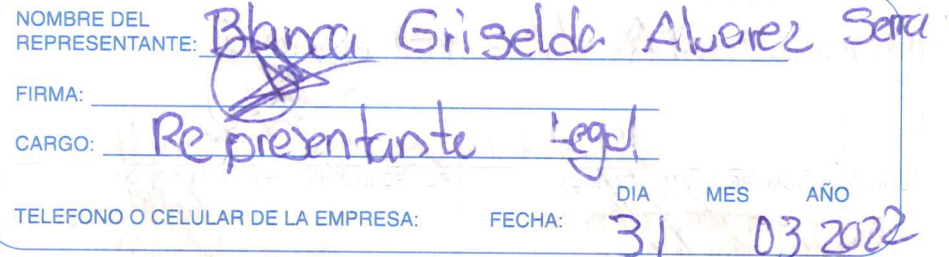 NOMBRE DEL
REPRESENTANTE: Blanca Griselda Alvarez Serra
FIRMA:
CARGO: Representante Legal
DIA MES AÑO
TELEFONO O CELULAR DE LA EMPRESA: FECHA: 31 03 2022